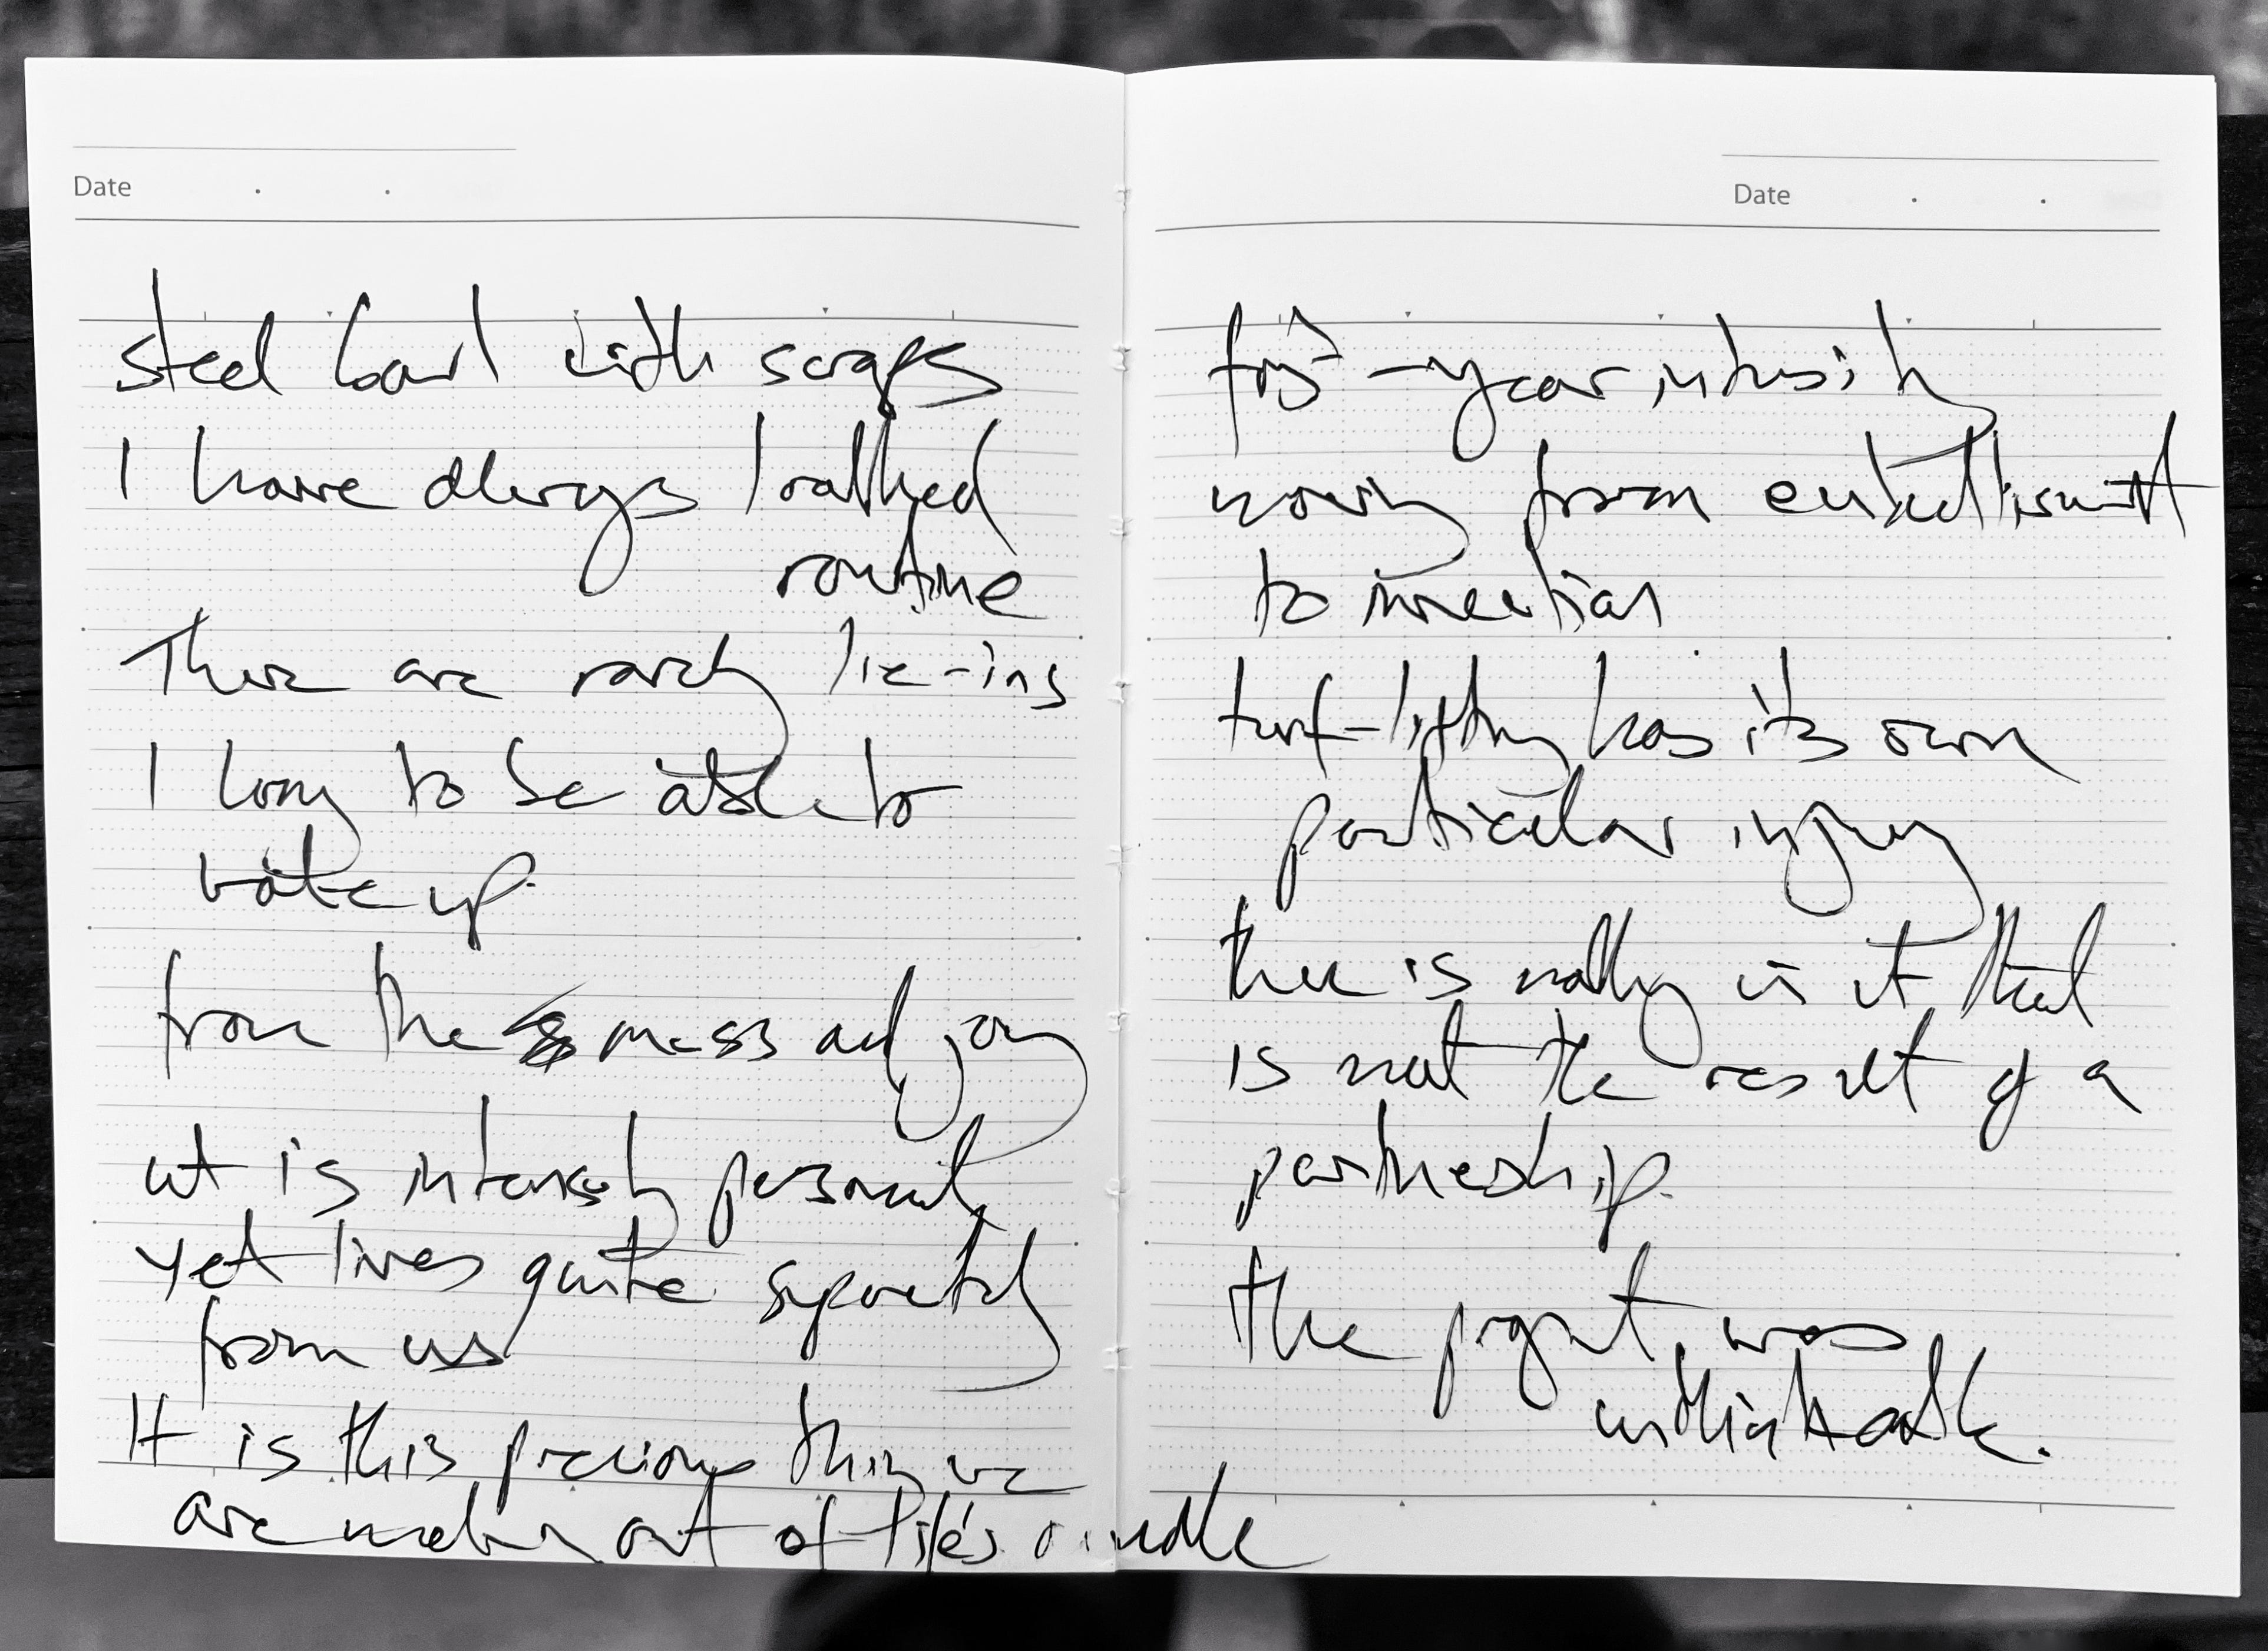 Date
steel bowl with scraps
I have always loathed
routine
There are rarely lie-ins
I long to be able to
wake up.
from the mess and joy
it is intensely personal
yet lives quite separately
from us
It is this precious thing we
are making out of life's
Date
first-year intensity
moving from
to invention
turf-lifting has its own
particular injury
there is nothing in it that
is not the result of a
partnership.
the pigment was